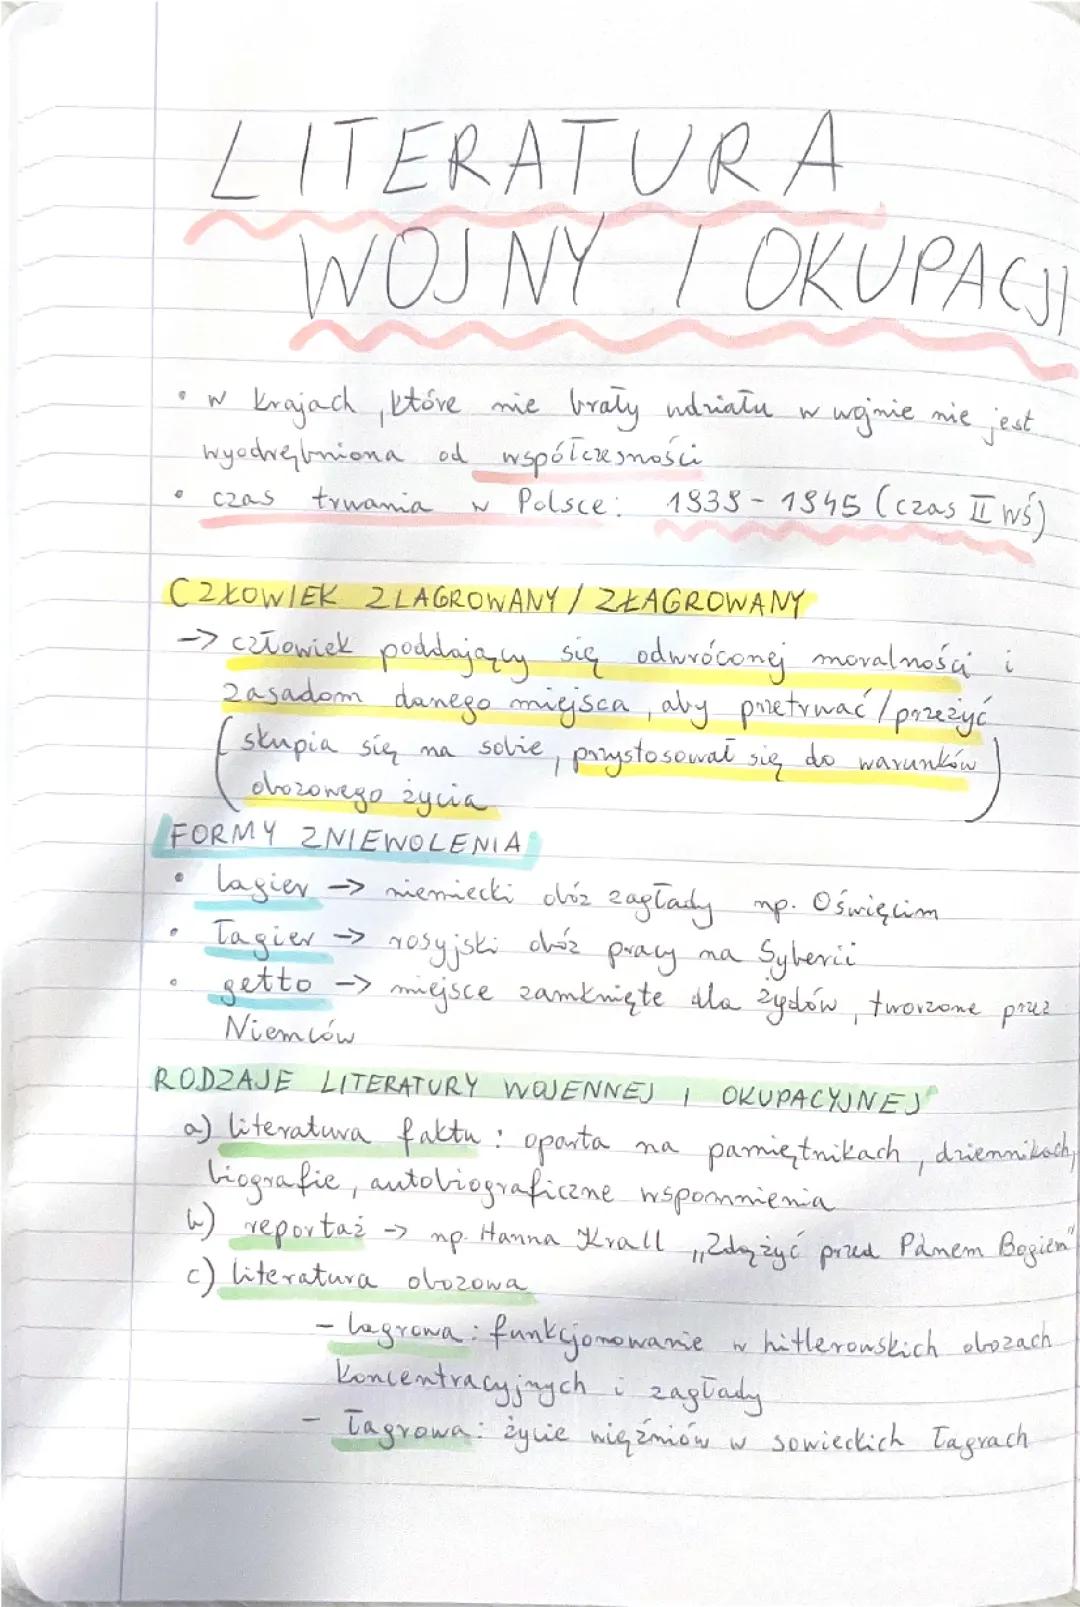 LITERATURA
WOJNY I OKUPACJI
• w krajach, które nie brały udziału w wojnie nie jest
wyodrębniona od współczesności
• czas trwania w Polsce: 1939 - 1945 (czas II WŚ)
CZŁOWIEK ZLAGROWANY / ZŁAGROWANY
-> człowiek poddający się odwróconej moralności i
zasadom danego miejsca, aby przetrwać / przeżyć
(skupia się na sobie, przystosował się do warunków
obozowego życia)
FORMY ZNIEWOLENIA
• lagier -> niemiecki obóz zagłady np. Oświęcim
• łagier -> rosyjski obóz pracy na Syberii
• getto -> miejsce zamknięte dla żydów, tworzone przez
Niemców
RODZAJE LITERATURY WOJENNEJ I OKUPACYJNEJ
a) literatura faktu: oparta na pamiętnikach, dziennikach,
biografie, autobiograficzne wspomnienia
b) reportaż -> np. Hanna Krall „Zdążyć przed Panem Bogiem"
c) literatura obozowa
- lagrowa: funkcjonowanie w hitlerowskich obozach
koncentracyjnych i zagłady
- łagrowa: życie więźniów w sowieckich łagrach